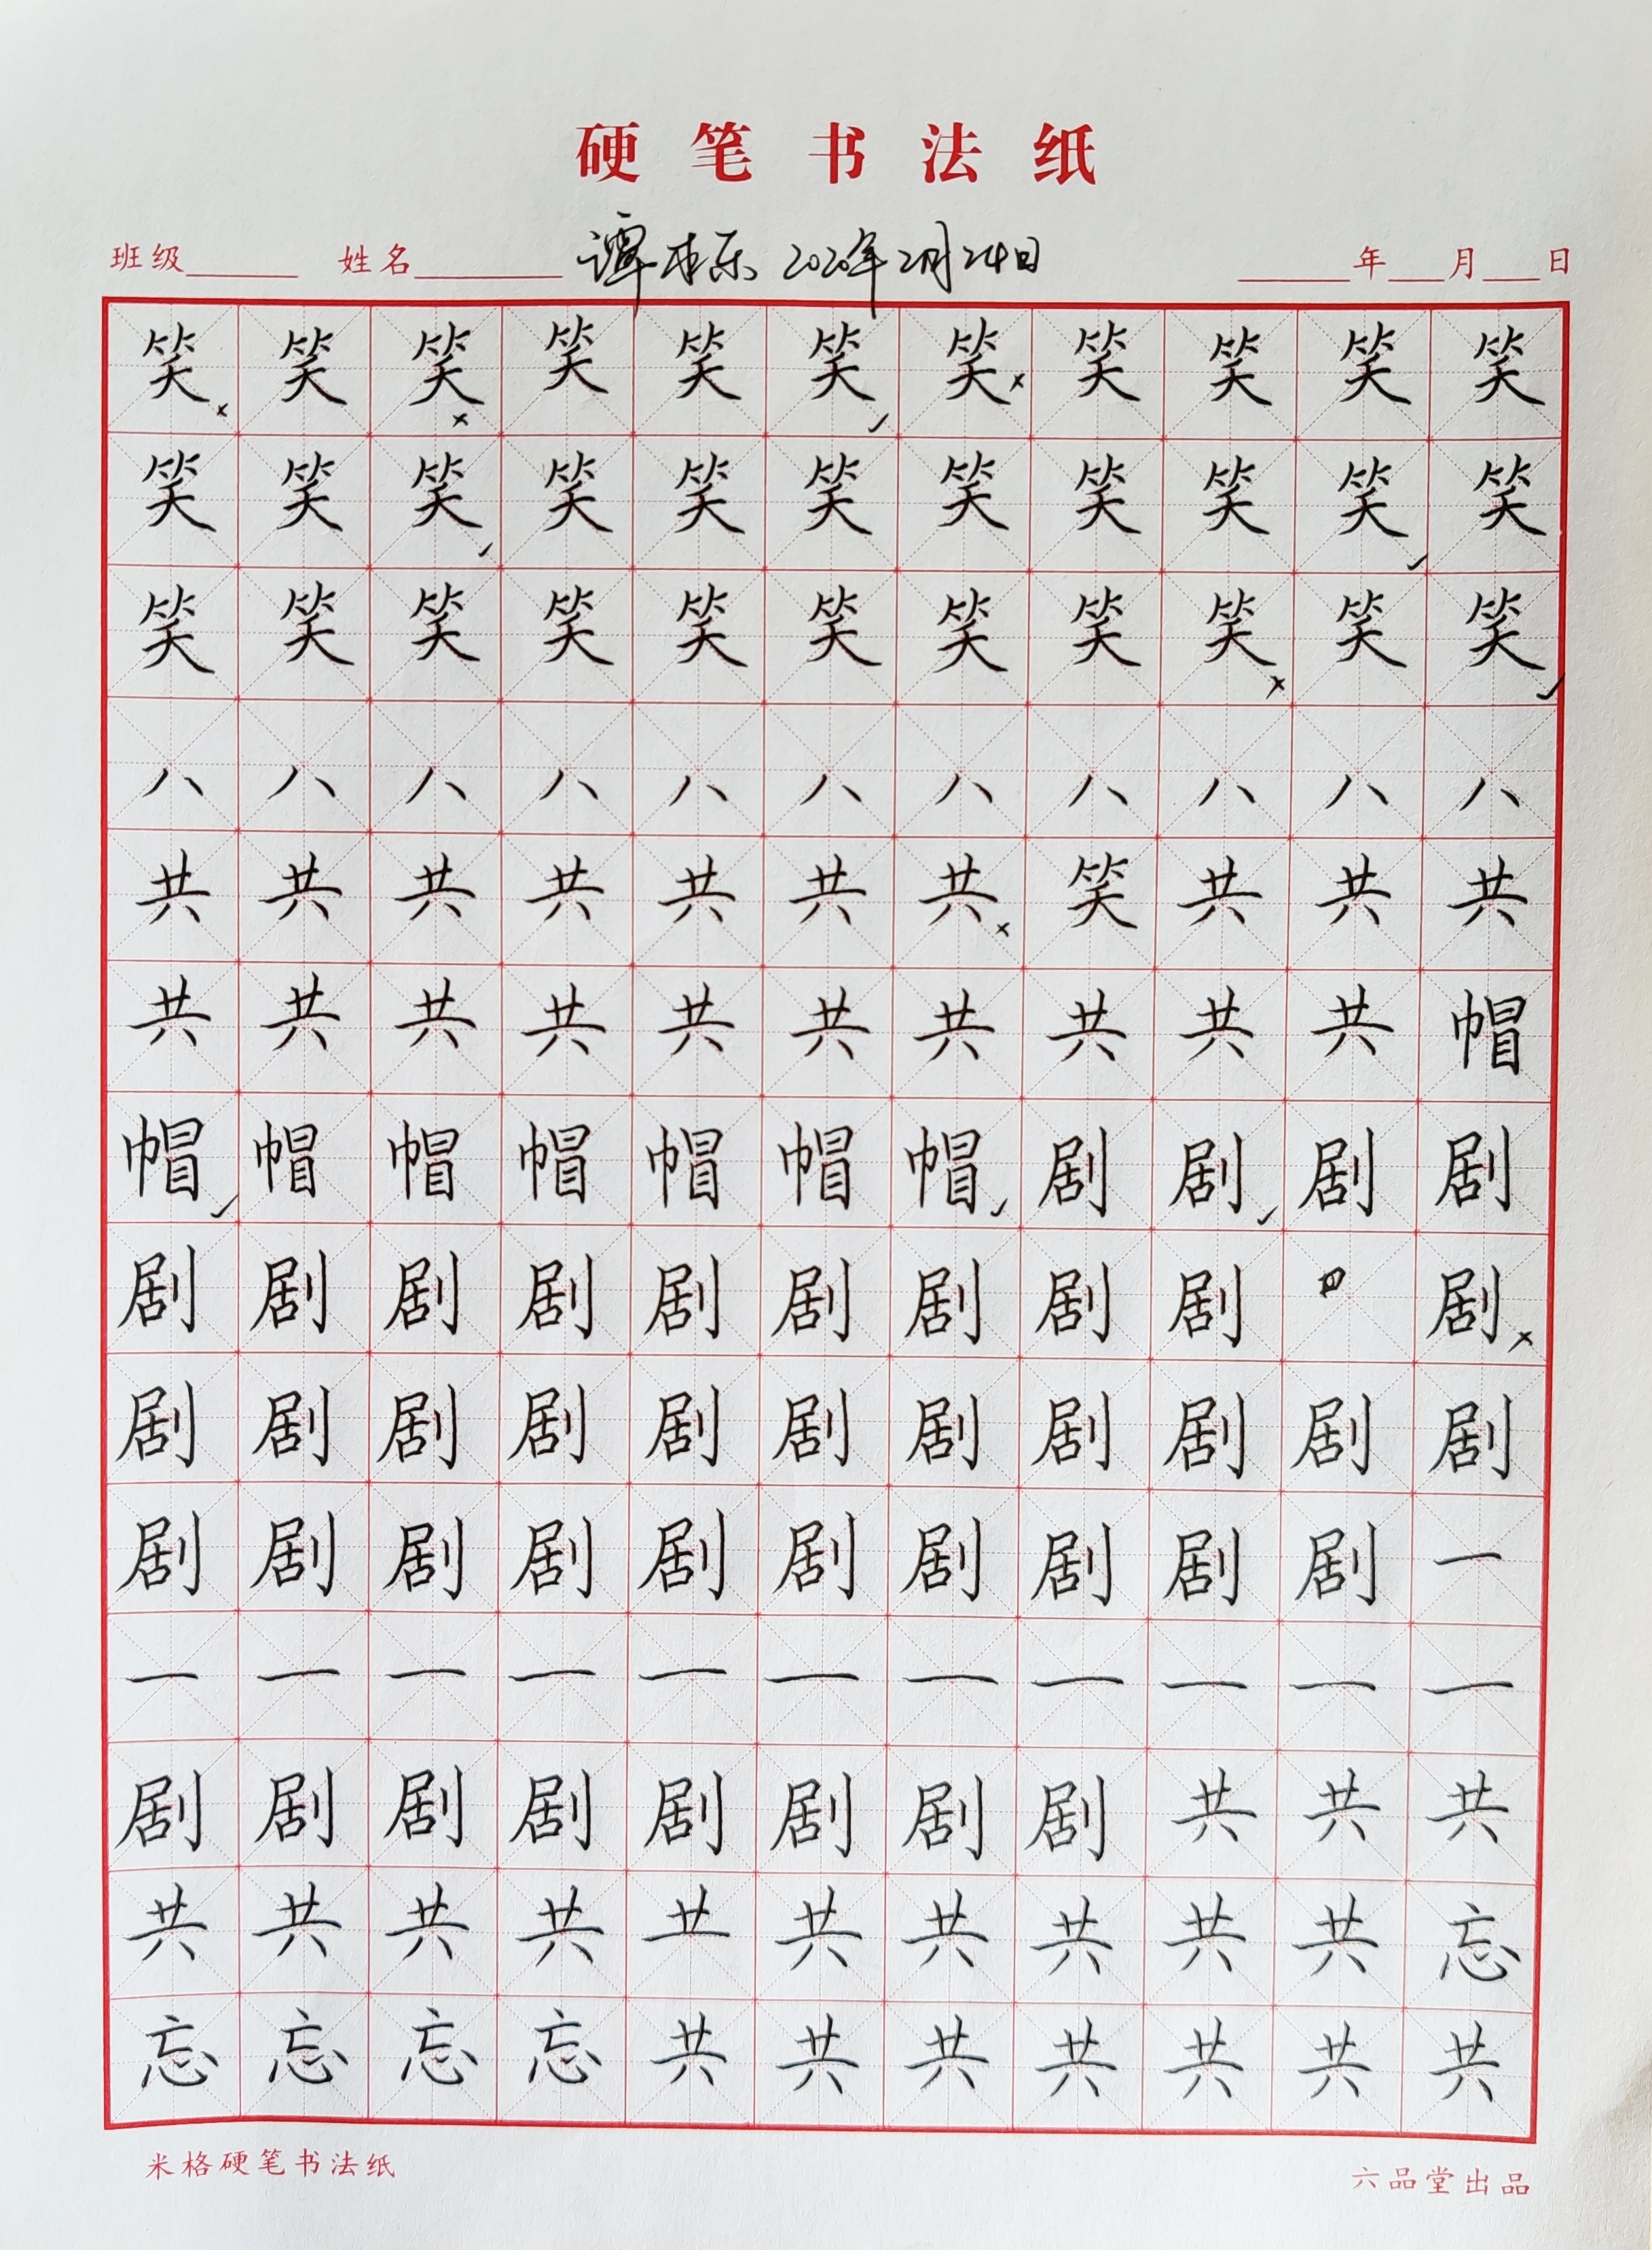 硬笔书法纸
班级 姓名 谭本乐 2020年2月24日 年 月 日
笑笑笑笑笑笑笑笑笑笑笑
笑笑笑笑笑笑笑笑笑笑笑
笑笑笑笑笑笑笑笑笑笑笑
八八八八八八八八八八八
共共共共共共共笑共共共
共共共共共共共共共共帽
帽帽帽帽帽帽帽剧剧剧剧
剧剧剧剧剧剧剧剧剧剧
剧剧剧剧剧剧剧剧剧剧剧
剧剧剧剧剧剧剧剧剧剧一
一一一一一一一一一一一
剧剧剧剧剧剧剧剧共共共
共共共共龷共共共共共忘
忘忘忘忘共共共共共共共
米格硬笔书法纸 六品堂出品